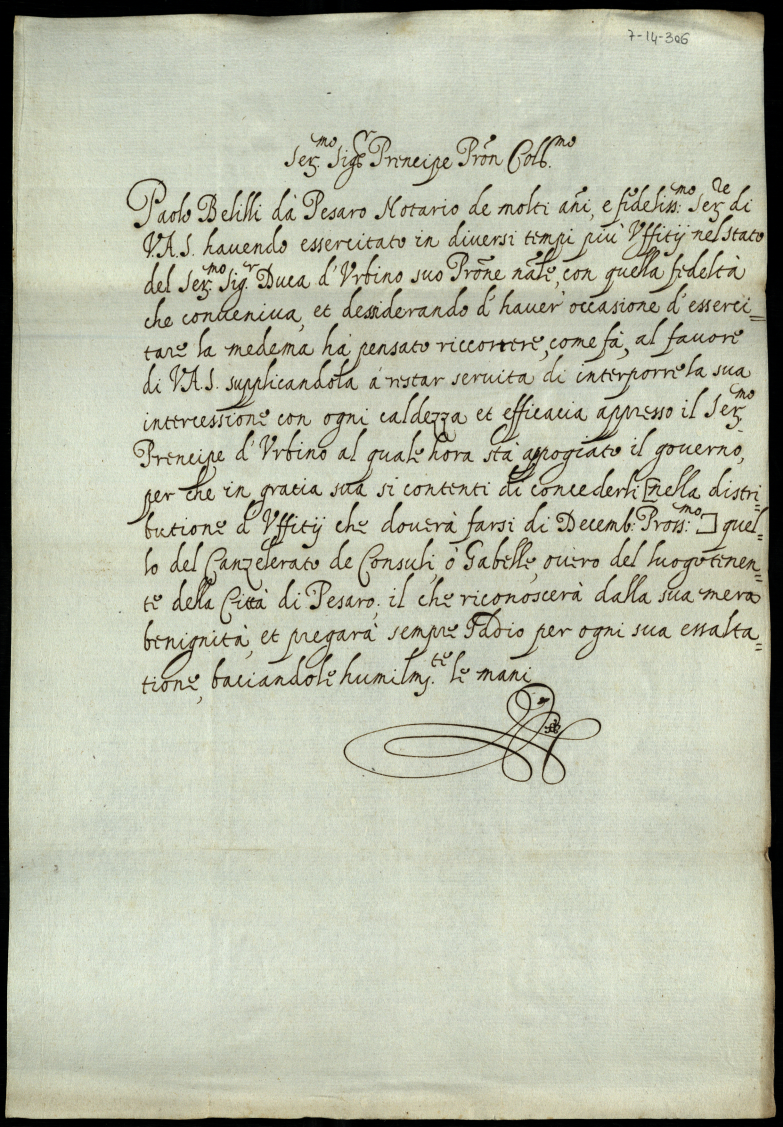 7-14-306
Ser.mo Sig.r Prencipe Prōn Coll.mo
Paolo Belilli dà Pesaro Notario de molti añi, e fideliss:mo Ser.re di
V.A.S. havendo essercitato in diversi tempi più Uffitij nel stato
del Ser.mo Sig.r Duca d'Urbino suo Prōne nāle, con quella fedeltà
che conveniva, et dessiderando d'haver occasione d'esserci=
tare la medema hà pensato riccorrere, come fà, al favore
di V.A.S. supplicandola á restar servita di interporre la sua
intercessione con ogni caldezza et efficacia appresso il Ser.mo
Prencipe d'Urbino al quale hora stà appogiato il governo,
per che in gratia sua si contenti di concederli [nella distri=
butione d'Uffitij che doverà farsi di Decemb: Pross:mo] quel=
lo del Canzelerato de Consuli, ò Gabelle, overo del luogotenen=
te della Città di Pesaro; il che riconoscerà dalla sua mera
benignità, et pregarà sempre Iddio per ogni sua essalta=
tione, baciandole humilm.te le mani